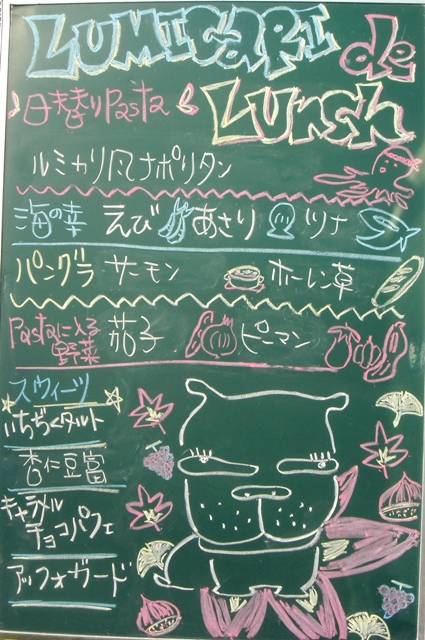 LUMICARI de
日替りPasta Lunch
ルミカリ風ナポリタン
海の幸 えび あさり ツナ
パングラ サーモン ホーレン草
Pastaに入る
野菜 茄子 ピーマン
スウィーツ
いちぢくタルト
杏仁豆富
キャラメル
チョコパフェ
アッフォガード